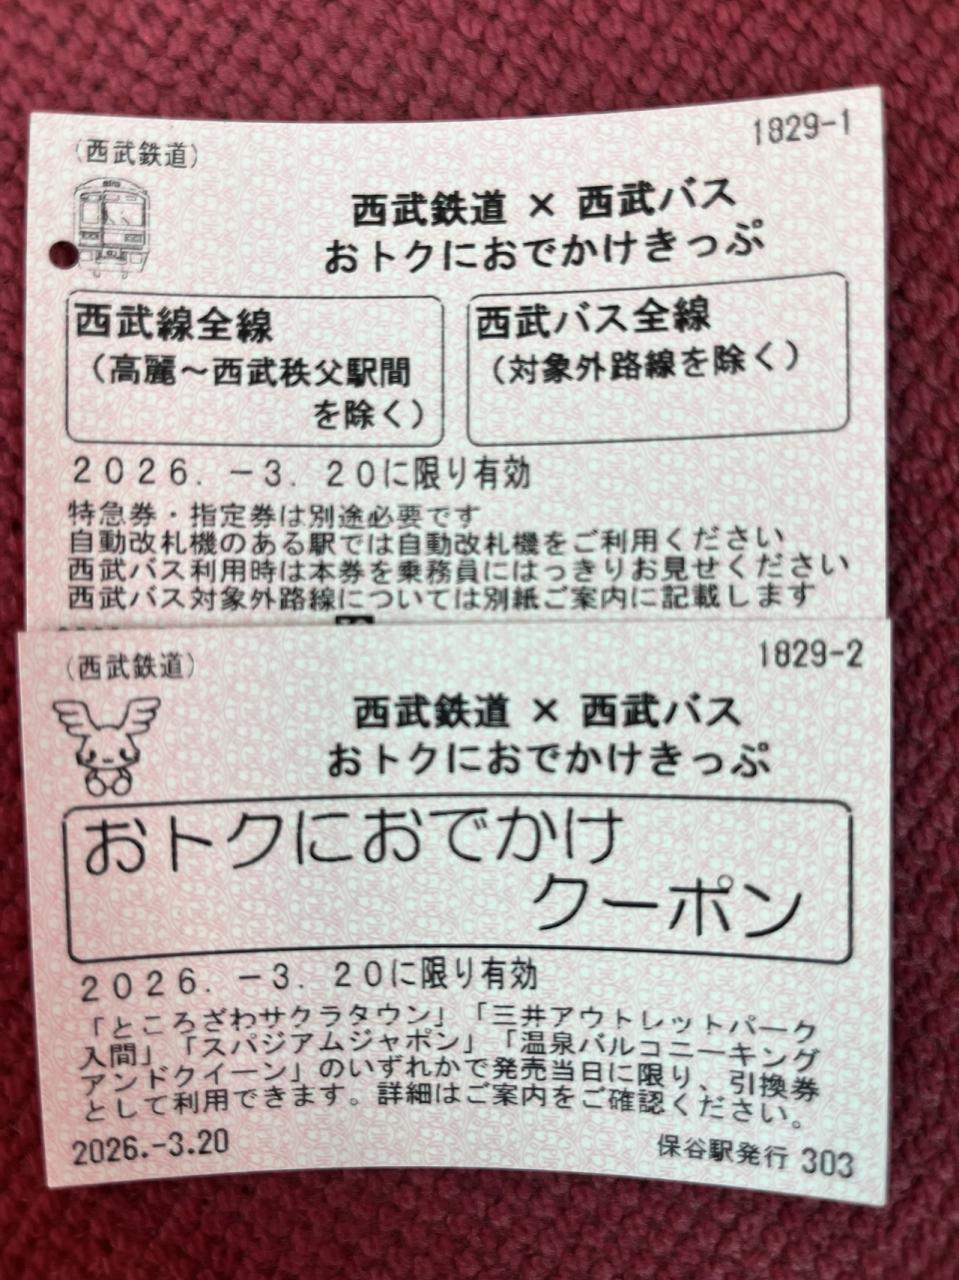 1829-1
(西武鉄道)
西武鉄道 × 西武バス
おトクにおでかけきっぷ
西武線全線
(高麗～西武秩父駅間
を除く)
西武バス全線
(対象外路線を除く)
2026.-3.20に限り有効
特急券・指定券は別途必要です
自動改札機のある駅では自動改札機をご利用ください
西武バス利用時は本券を乗務員にはっきりお見せください
西武バス対象外路線については別紙ご案内に記載します
1829-2
(西武鉄道)
西武鉄道 × 西武バス
おトクにおでかけきっぷ
おトクにおでかけ
クーポン
2026.-3.20に限り有効
「ところざわサクラタウン」「三井アウトレットパーク
入間」「スパジアムジャポン」「温泉バルコニーキング
アンドクイーン」のいずれかで発売当日に限り、引換券
として利用できます。詳細はご案内をご確認ください。
2026.-3.20
保谷駅発行 303